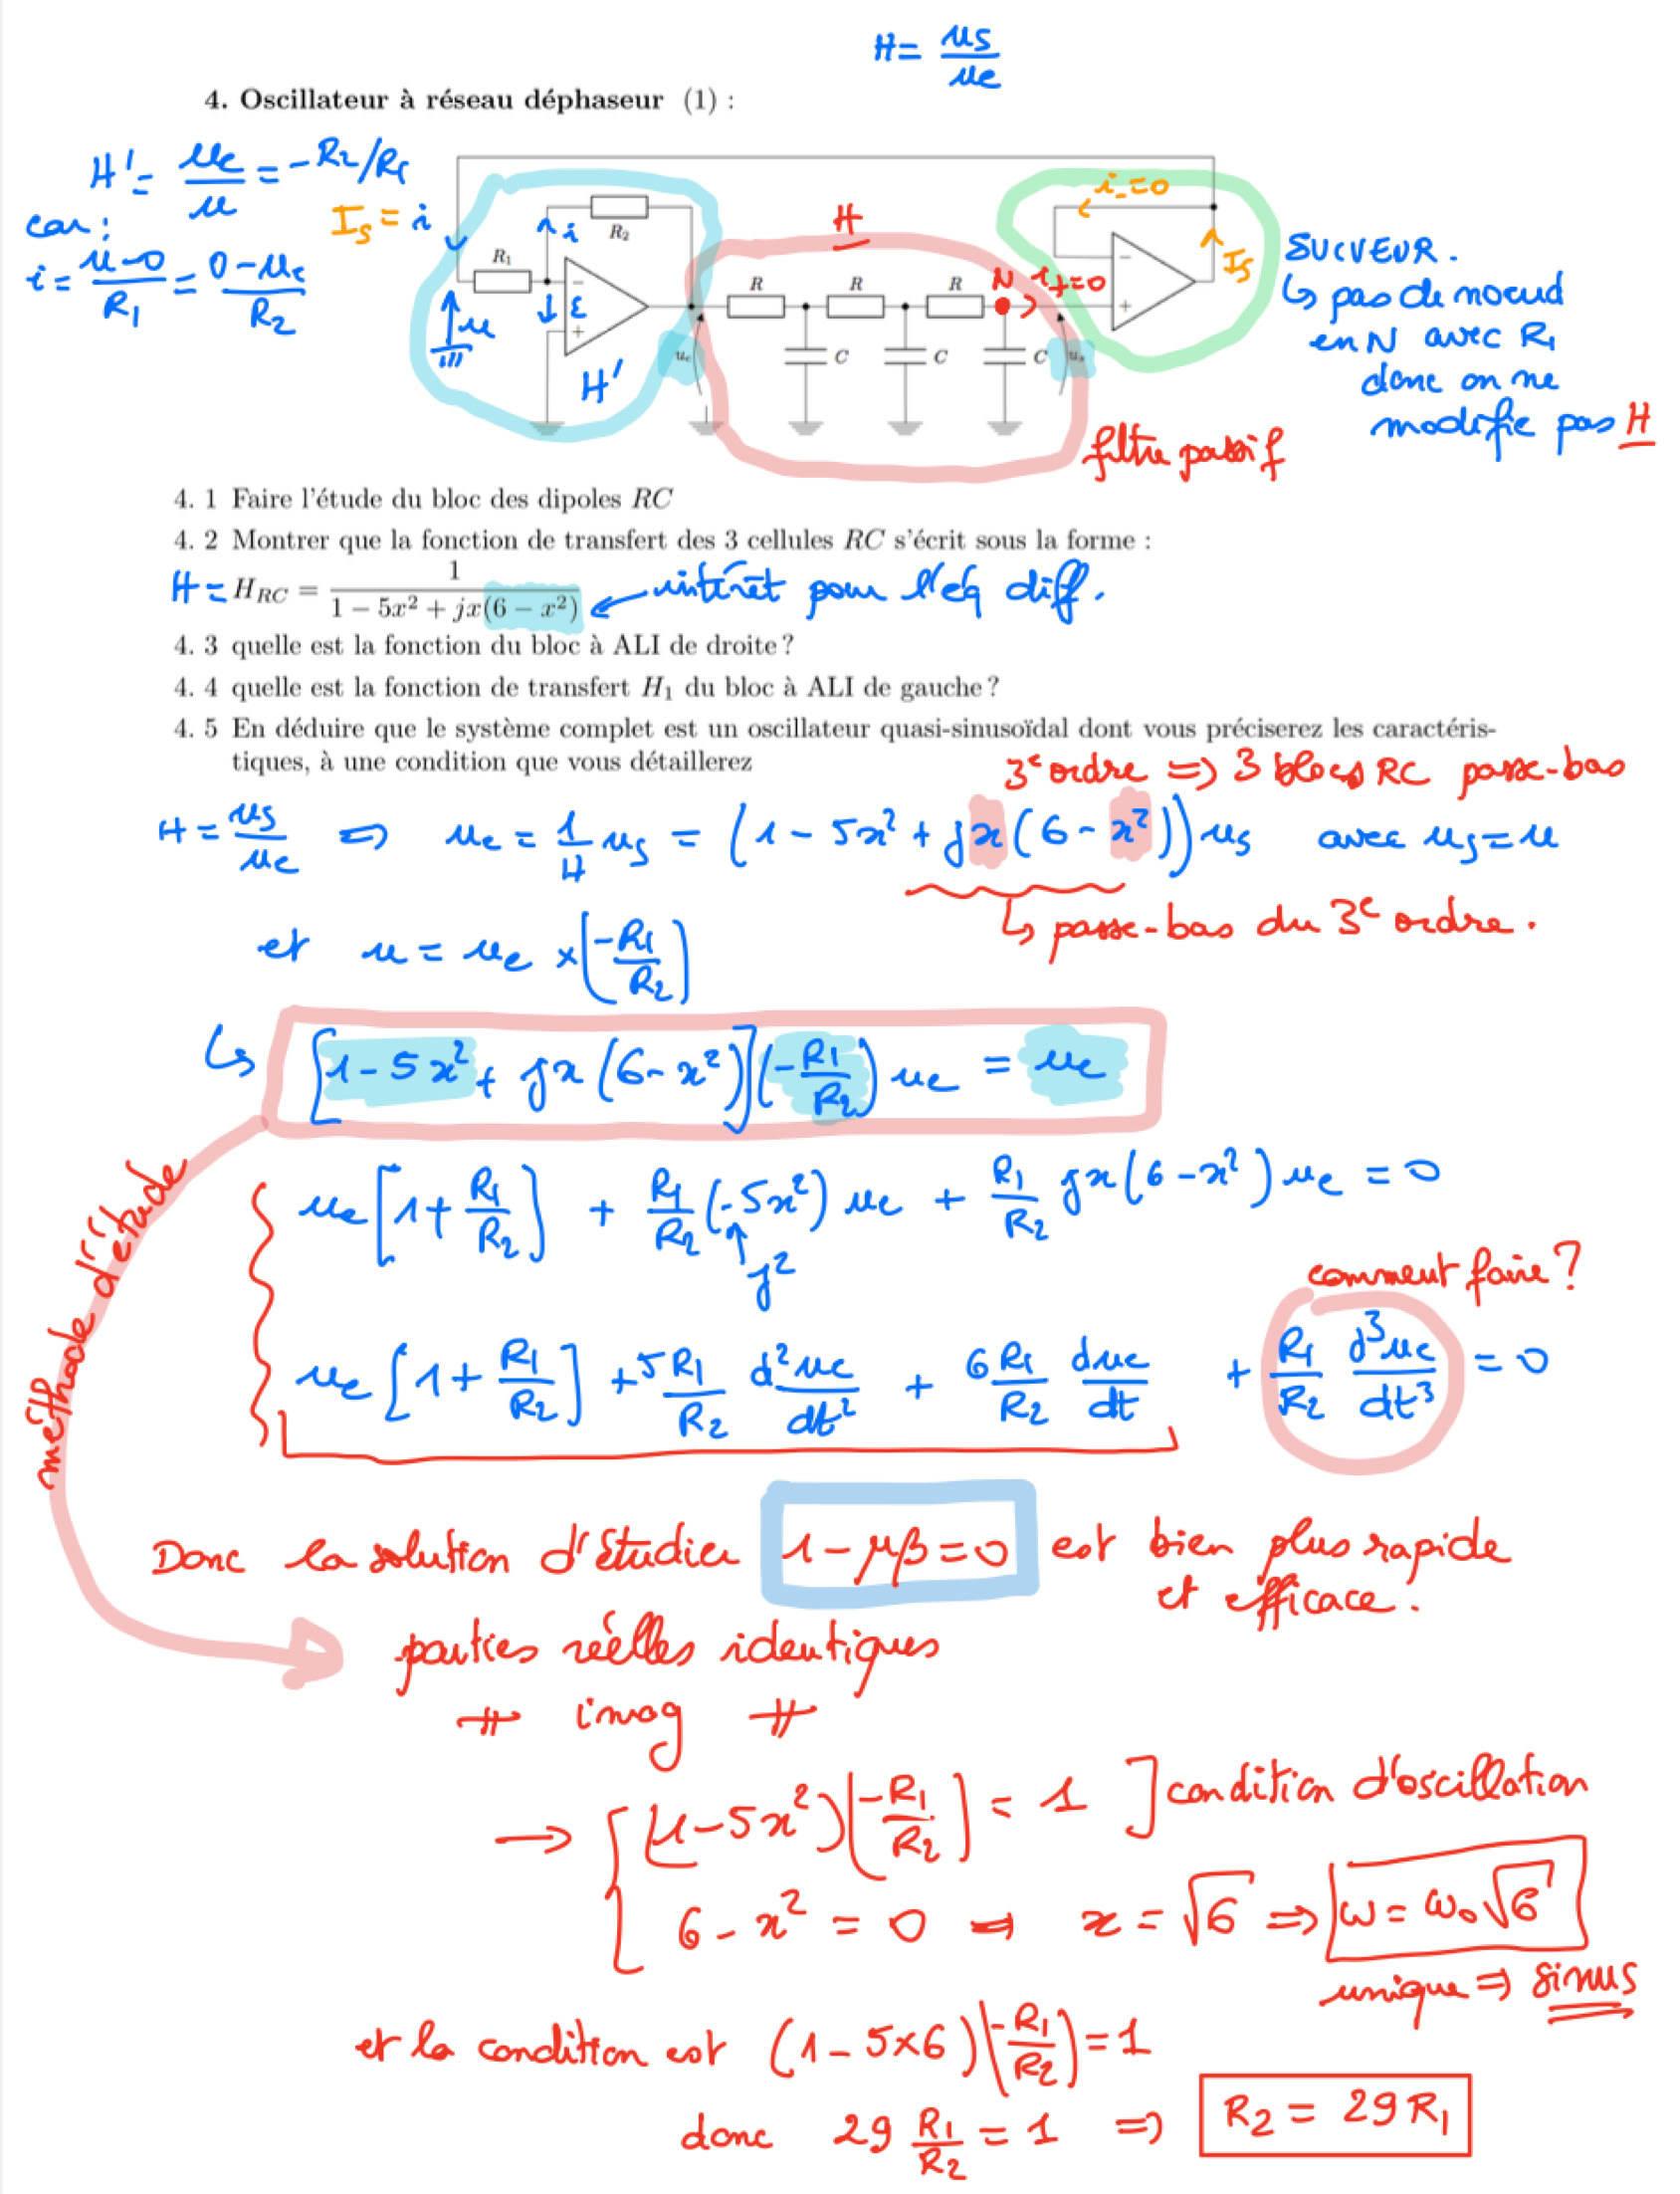 H = us/ue
4. Oscillateur à réseau déphaseur (1) :
H' = ue/u = -R2/R1
car :
i = (u-0)/R1 = (0-ue)/R2
Is = i
R1
R2
i
ε
u
H'
ue
H
R
R
R
C
C
C
N
i+=0
us
i-=0
Is
-
+
-
+
SUIVEUR.
↳ pas de noeud
en N avec R1
donc on ne
modifie pas H
filtre passif
4. 1 Faire l'étude du bloc des dipoles RC
4. 2 Montrer que la fonction de transfert des 3 cellules RC s'écrit sous la forme :
H = HRC = 1/(1 − 5x² + jx(6 − x²)) ← intérêt pour l'éq diff.
4. 3 quelle est la fonction du bloc à ALI de droite ?
4. 4 quelle est la fonction de transfert H1 du bloc à ALI de gauche ?
4. 5 En déduire que le système complet est un oscillateur quasi-sinusoïdal dont vous préciserez les caractéris-
tiques, à une condition que vous détaillerez
3e ordre => 3 blocs RC passe-bas
H = us/ue <=> ue = 1/H us = (1 - 5x² + jx(6 - x²)) us avec us = u
↳ passe-bas du 3e ordre.
et u = ue × (-R1/R2)
↳ [1 - 5x² + jx(6 - x²)](-R1/R2) ue = ue
méthode d'étude
ue[1 + R1/R2] + R1/R2 (-5x²) ue + R1/R2 jx(6 - x²) ue = 0
j²
comment faire ?
ue[1 + R1/R2] + 5R1/R2 d²ue/dt² + 6R1/R2 due/dt + R1/R2 d³ue/dt³ = 0
Donc la solution d'étudier 1 - μβ = 0 est bien plus rapide
et efficace.
parties réelles identiques
-//- imag -//-
→ [(1-5x²)(-R1/R2) = 1 ] condition d'oscillation
6 - x² = 0 => x = √6 => ω = ω0√6
unique => sinus
et la condition est (1 - 5×6)(-R1/R2) = 1
donc 29 R1/R2 = 1 => R2 = 29 R1